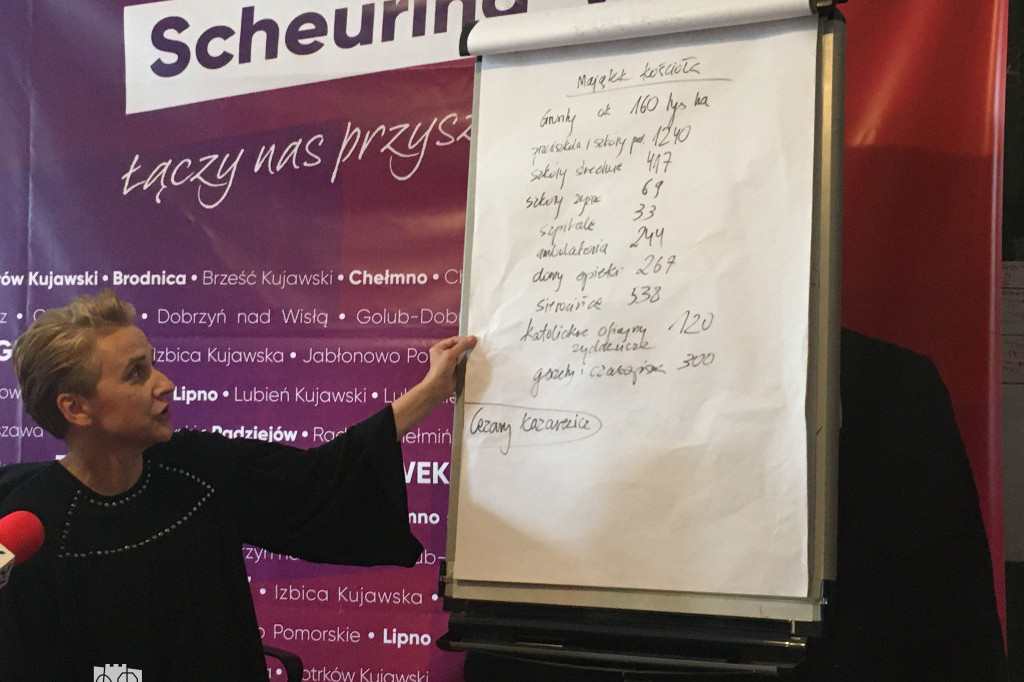 Scheuring
Łączy nas przysz
ów Kujawski • Brodnica • Brześć Kujawski • Chełmno • Ch
• Dobrzyń nad Wisłą • Golub-Dob
Izbica Kujawska • Jabłonowo Po
Lipno • Lubień Kujawski • Lu
szawa Radziejów • Rad hełmiń
WEK
mno
ub-
• Izbica Kujawska •
o Pomorskie • Lipno
otrków Kujawski
Majątek kościoła
Grunty ok 160 tys ha
przedszkola i szkoły pod. 1240
szkoły średnie 417
szkoły wyższe 69
szpitale 33
ambulatoria 244
domy opieki 267
sierocińce 538
katolickie oficyny 120
wydawnicze
gazety i czasopisma 300
Cezary Kazarewicz